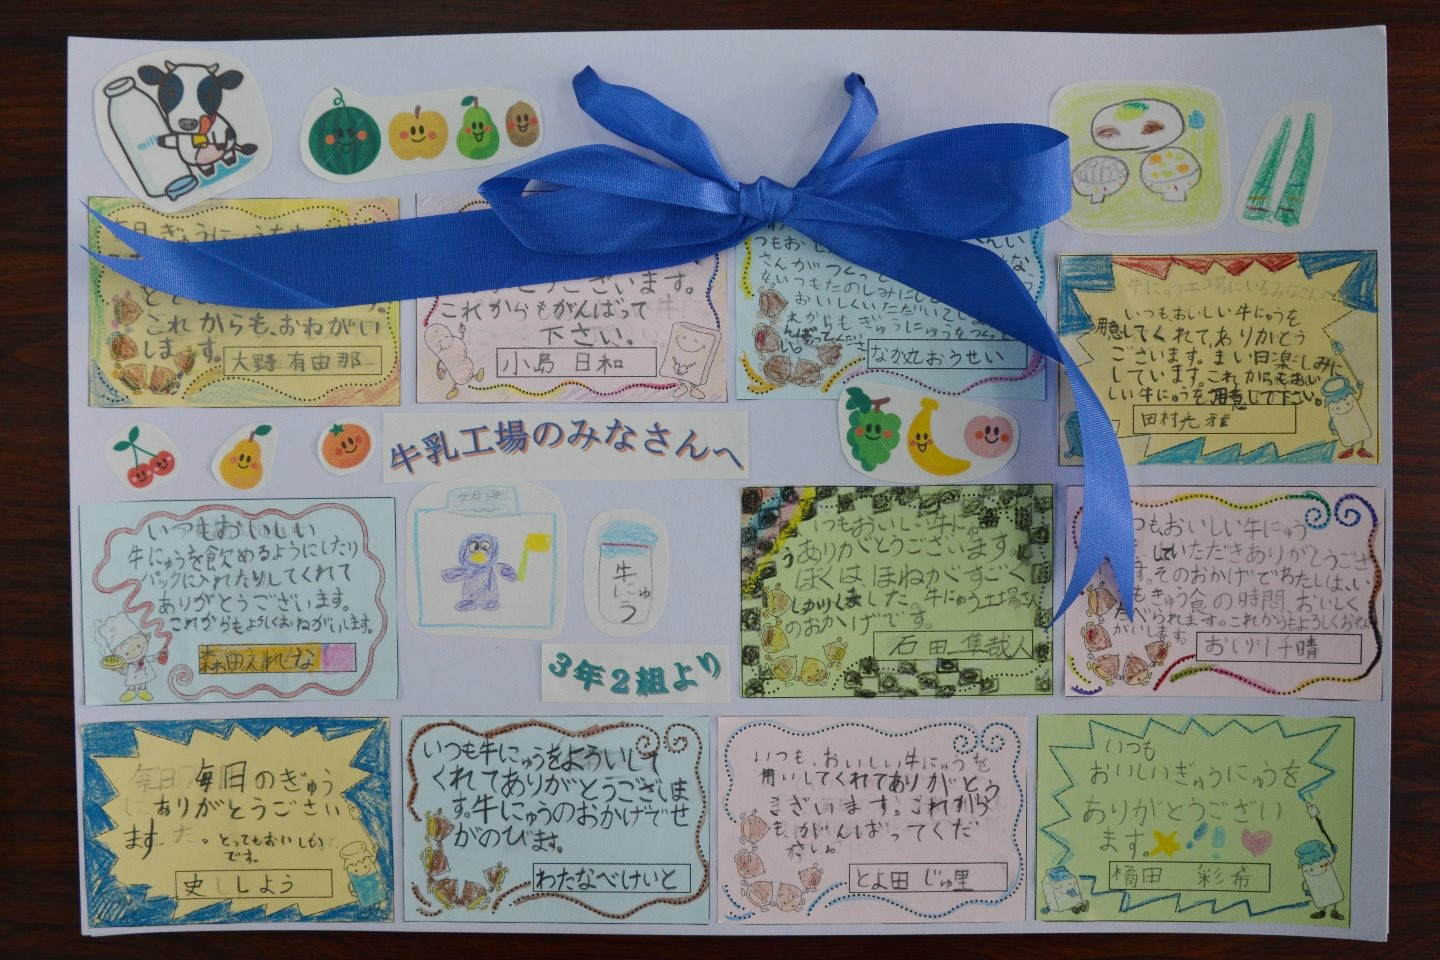 milk
これからも、おねがい
します。
大野 有由那
ございます。
これからもがんばって
下さい。
小島 日和
つもお
さんがつくっ
いつもたのしみにし
おいしくいただいて
れからもぎゅうにゅうをつくっ
なか丸おうせい
牛にゅう工場にいるみなさん
いつもおいしい牛にゅうを
用意してくれて、ありがとう
ございます。まい日楽しみに
しています。これからもおい
しい牛にゅうを用意して下さい。
田村光雅
牛乳工場のみなさんへ
いつもおいしい
牛にゅうを飲めるようにしたり
パックに入れたりしてくれて
ありがとうございます。
これからもよろしくおねがいします。
森田えれな
牛にゅう
3年2組より
いつもおいしい牛にゅ
うありがとうございます。
ぼくは ほねがすごく
しました。牛にゅう工場さん
のおかげです。
石田 隼哉人
つもおいしい牛にゅう
していただきありがとうござ
す。そのおかげでわたしは、い
もきゅう食の時間、おいしく
たべられます。これからもよろしくおね
がいします。
千晴
毎日のぎゅう
にありがとうござい
ます。とってもおいしい
です。
史 ししよう
いつも牛にゅうをよういして
くれてありがとうございま
す。牛にゅうのおかげでせ
がのびます。
わたなべけいと
いつも、おいしい牛にゅうを
用いしてくれてありがとう
ございます。これから
もがんばってくだ
さい。
とよ田 じゅ里
いつも
おいしいぎゅうにゅうを
ありがとうござい
ます。
橘田 彩希